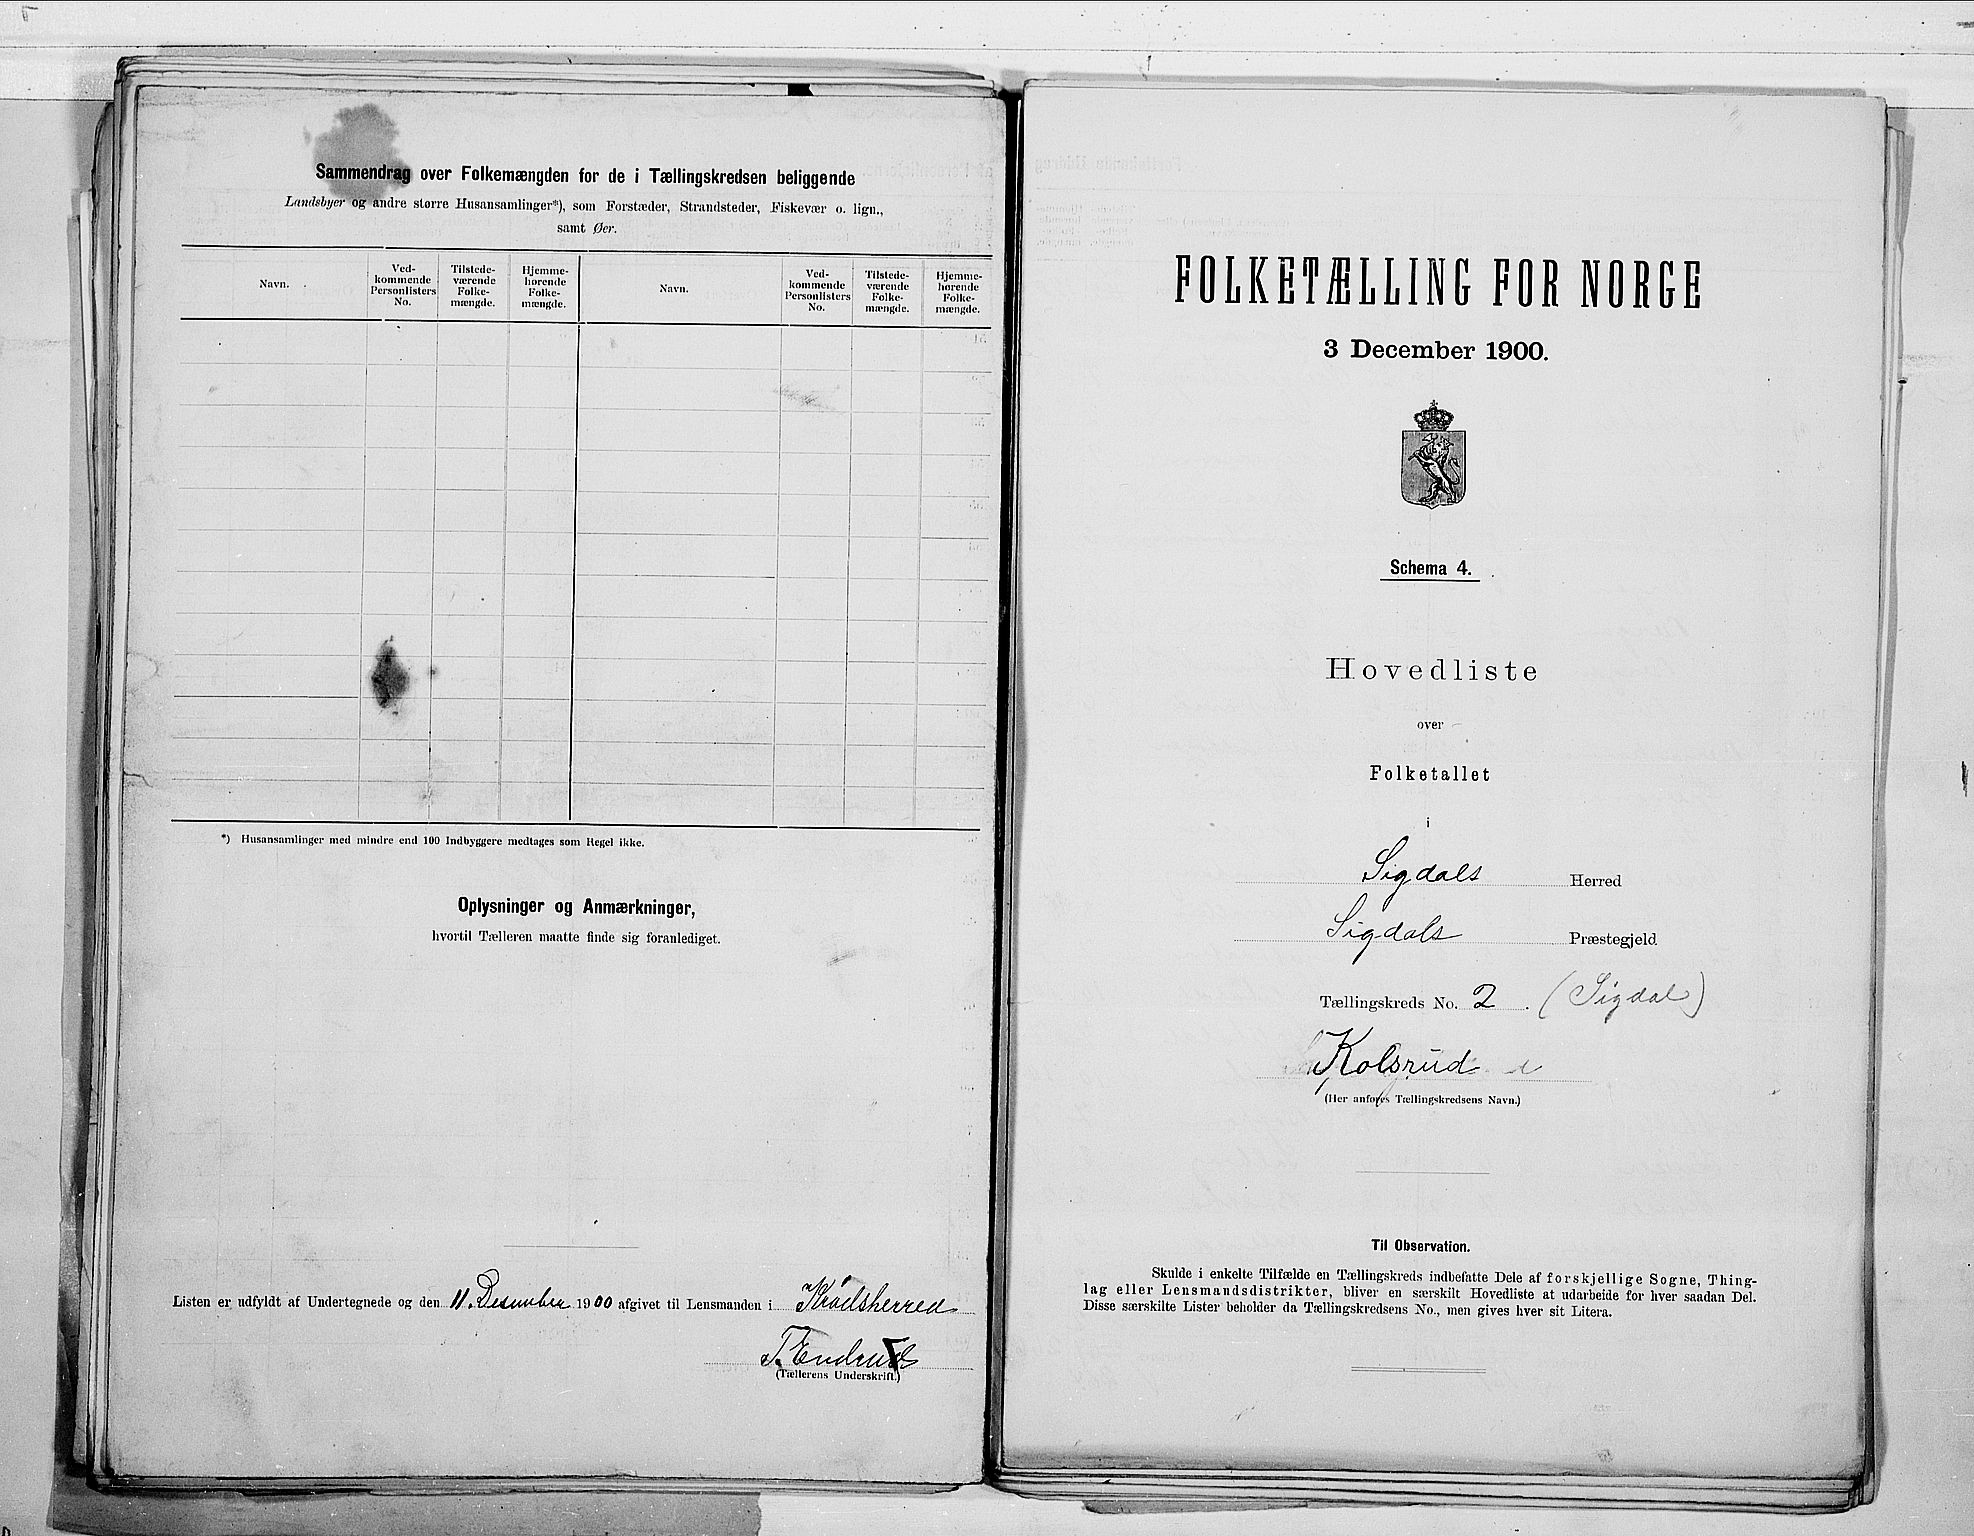 Sammendrag over Folkemængden for de i Tællingskredsen beliggende
Landsbyer og andre større Husansamlinger*), som Forstæder, Strandsteder, Fiskevær o. lign.,
samt Øer.
Navn.
Ved-
kommende
Personlisters
No.
Tilstede-
værende
Folke-
mængde.
Hjemme-
hørende
Folke-
mængde.
Navn.
Ved-
kommende
Personlisters
No.
Tilstede-
værende
Folke-
mængde.
Hjemme-
hørende
Folke-
mængde.
*) Husansamlinger med mindre end 100 Indbyggere medtages som Regel ikke.
Oplysninger og Anmærkninger,
hvortil Tælleren maatte finde sig foranlediget.
Listen er udfyldt af Undertegnede og den 11. Desember 1900 afgivet til Lensmanden i Krødsherred
T. Endrud
(Tællerens Underskrift.)
FOLKETÆLLING FOR NORGE
3 December 1900.
Schema 4.
Hovedliste
over
Folketallet
i
Sigdals Herred
Sigdals Præstegjeld
Tællingskreds No. 2. (Sigdal)
Kolsrud
(Her anføres Tællingskredsens Navn.)
Til Observation.
Skulde i enkelte Tilfælde en Tællingskreds indbefatte Dele af forskjellige Sogne, Thing-
lag eller Lensmandsdistrikter, bliver en særskilt Hovedliste at udarbeide for hver saadan Del.
Disse særskilte Lister beholder da Tællingskredsens No., men gives hver sit Litera.